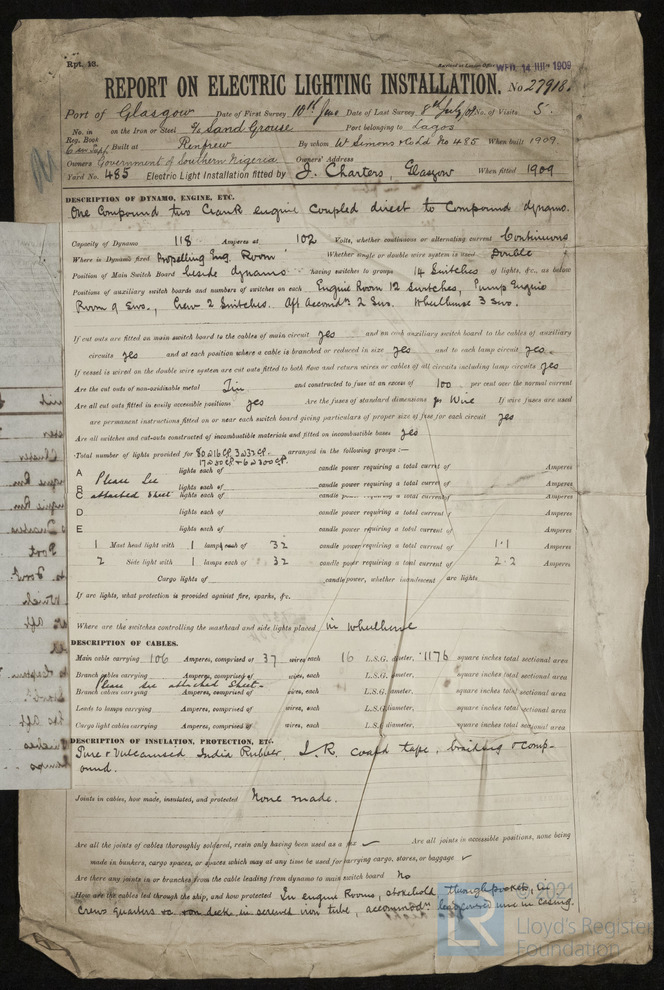 Rpt. 13.
WED. 14 JUL 1909
REPORT ON ELECTRIC LIGHTING INSTALLATION. No 27918.
Port of Glasgow Date of First Survey 10th June Date of Last Survey 8th July 09 No. of Visits 5.
No. in Reg. Book on the Iron or Steel Sand Grouse Port belonging to Lagos
Built at Renfrew By whom W Simons & Co Ld No 485 When built 1909.
Owners Government of Southern Nigeria Owners' Address
Yard No. 485 Electric Light Installation fitted by J. Charters, Glasgow When fitted 1909
DESCRIPTION OF DYNAMO, ENGINE, ETC.
One Compound two Crank engine Coupled direct to Compound dynamo.
Capacity of Dynamo 118 Amperes at 102 Volts, whether continuous or alternating current Continuous
Where is Dynamo fixed Propelling Eng. Room Whether single or double wire system is used Double
Position of Main Switch Board beside dynamo having switches to groups 14 Switches of lights, &c., as below
Positions of auxiliary switch boards and numbers of switches on each Engine Room 12 Switches, Pump Engine
Room 9 Sws., Crew 2 Switches. Aft Accomdn 2 Sws. Wheelhouse 3 Sws.
If cut outs are fitted on main switch board to the cables of main circuit yes and on each auxiliary switch board to the cables of auxiliary
circuits yes and at each position where a cable is branched or reduced in size yes and to each lamp circuit yes.
If vessel is wired on the double wire system are cut outs fitted to both flow and return wires or cables of all circuits including lamp circuits yes
Are the cut outs of non-oxidizable metal Tin and constructed to fuse at an excess of 100 per cent over the normal current
Are all cut outs fitted in easily accessible positions yes Are the fuses of standard dimensions yes Wire If wire fuses are used
are permanent instructions fitted on or near each switch board giving particulars of proper size of fuse for each circuit yes
Are all switches and cut-outs constructed of incombustible materials and fitted on incombustible bases yes
Total number of lights provided for 80 @ 16 CP, 3 @ 32 CP. arranged in the following groups :—
17 @ 50 CP & 6 @ 300 CP.
A lights each of candle power requiring a total current of Amperes
Please See
B lights each of candle power requiring a total current of Amperes
C attached Sheet lights each of candle power requiring a total current of Amperes
D lights each of candle power requiring a total current of Amperes
E lights each of candle power requiring a total current of Amperes
1 Mast head light with 1 lamps each of 32 candle power requiring a total current of 1.1 Amperes
2 Side light with 1 lamps each of 32 candle power requiring a total current of 2.2 Amperes
Cargo lights of candle power, whether incandescent or arc lights
If arc lights, what protection is provided against fire, sparks, &c.
Where are the switches controlling the masthead and side lights placed in wheelhouse
DESCRIPTION OF CABLES.
Main cable carrying 106 Amperes, comprised of 37 wires, each 16 L.S.G. diameter, .1176 square inches total sectional area
Branch cables carrying Amperes, comprised of wires, each L.S.G. diameter, square inches total sectional area
Please see attached Sheet.
Branch cables carrying Amperes, comprised of wires, each L.S.G. diameter, square inches total sectional area
Leads to lamps carrying Amperes, comprised of wires, each L.S.G. diameter, square inches total sectional area
Cargo light cables carrying Amperes, comprised of wires, each L.S.G. diameter, square inches total sectional area
DESCRIPTION OF INSULATION, PROTECTION, ETC.
Pure & Vulcanised India Rubber, I.R. coated tape, braiding & comp-
ound.
Joints in cables, how made, insulated, and protected None made.
Are all the joints of cables thoroughly soldered, resin only having been used as a flux ✓ Are all joints in accessible positions, none being
made in bunkers, cargo spaces, or spaces which may at any time be used for carrying cargo, stores, or baggage ✓
Are there any joints in or branches from the cable leading from dynamo to main switch board No
How are the cables led through the ship, and how protected In engine Rooms, stokehold through pockets, in
Crews quarters &c on deck in screwed iron tube, accommdn. lead covered wire in casing.
© 2021
LR
Lloyd's Register
Foundation